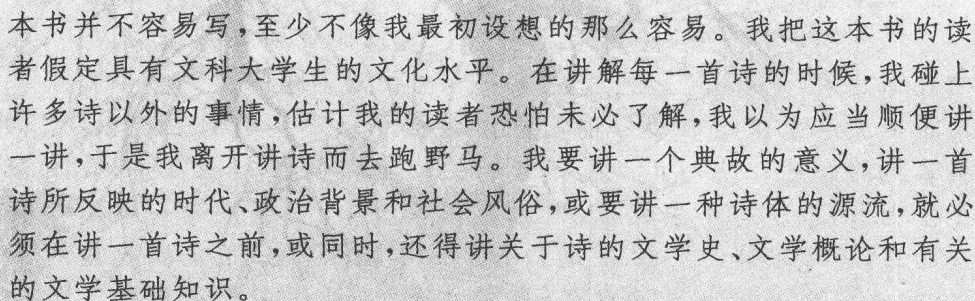 本书并不容易写,至少不像我最初设想的那么容易。我把这本书的读
者假定具有文科大学生的文化水平。在讲解每一首诗的时候,我碰上
许多诗以外的事情,估计我的读者恐怕未必了解,我以为应当顺便讲
一讲,于是我离开讲诗而去跑野马。我要讲一个典故的意义,讲一首
诗所反映的时代、政治背景和社会风俗,或要讲一种诗体的源流,就必
须在讲一首诗之前,或同时,还得讲关于诗的文学史、文学概论和有关
的文学基础知识。